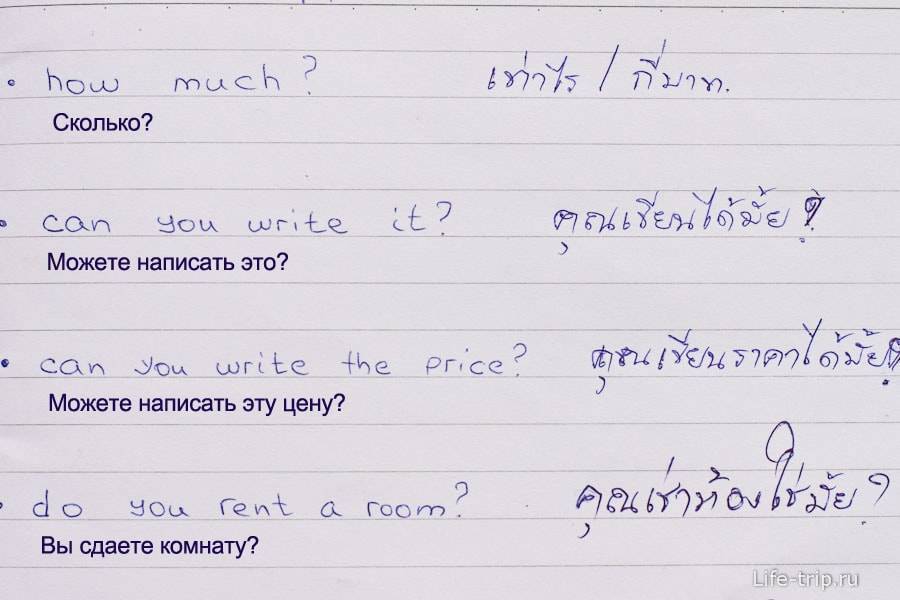 • how much? เท่าไร / กี่บาท.
Сколько?
• can you write it? คุณเขียนได้มั้ย ?
Можете написать это?
• can you write the price? คุณเขียนราคาได้มั้ย?
Можете написать эту цену?
• do you rent a room? คุณเช่าห้องใช่มั้ย ?
Вы сдаете комнату?
Life-trip.ru